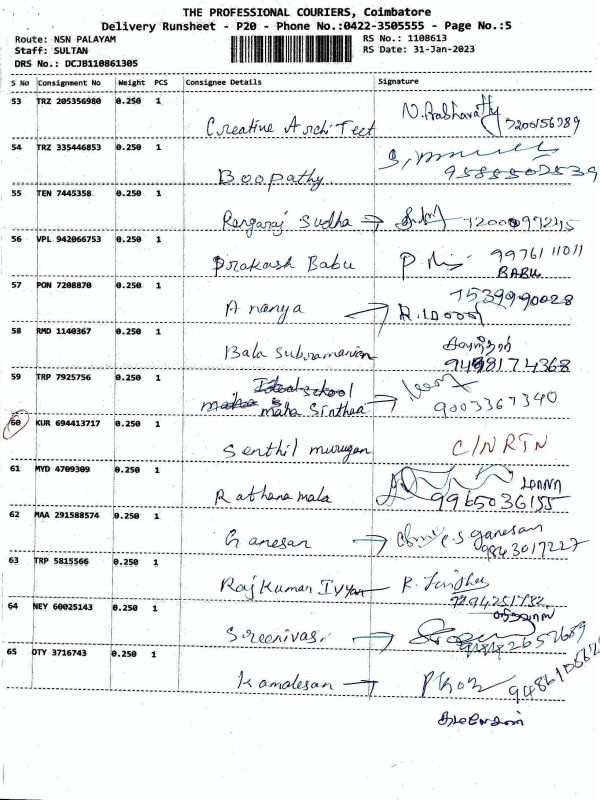 THE PROFESSIONAL COURIERS, Coimbatore
Delivery Runsheet - P20 - Phone No.:0422-3505555 - Page No.:5
Route: NSN PALAYAM RS No.: 1108613
Staff: SULTAN RS Date: 31-Jan-2023
DRS No.: DCJB110861305
S No Consignment No Weight PCS Consignee Details Signature
53 TRZ 205356980 0.250 1
Creative ArchiTect 7200156789
54 TRZ 335446853 0.250 1
Boopathy 9585502539
55 TEN 7445358 0.250 1
Rengaraj Sudha
56 VPL 942066753 0.250 1
Prakash Babu 9976111011
BABU
57 PON 7208870 0.250 1
7539990028
Ananya
58 RMD 1140367 0.250 1
Bala Subramanian
9498174368
59 TRP 7925756 0.250 1
Ideal School
maha maha Sinthea 9003367340
60 KUR 694413717 0.250 1
Senthil murugan C/N RTN
61 MYD 4709309 0.250 1
Rathana mala 9965036155
62 MAA 291588574 0.250 1
Ganesan C S ganesan
9843017227
63 TRP 5815566 0.250 1
Raj Kumar Iyyan
64 NEY 60025143 0.250 1
Sreenivas
65 OTY 3716743 0.250 1
Kamalesan